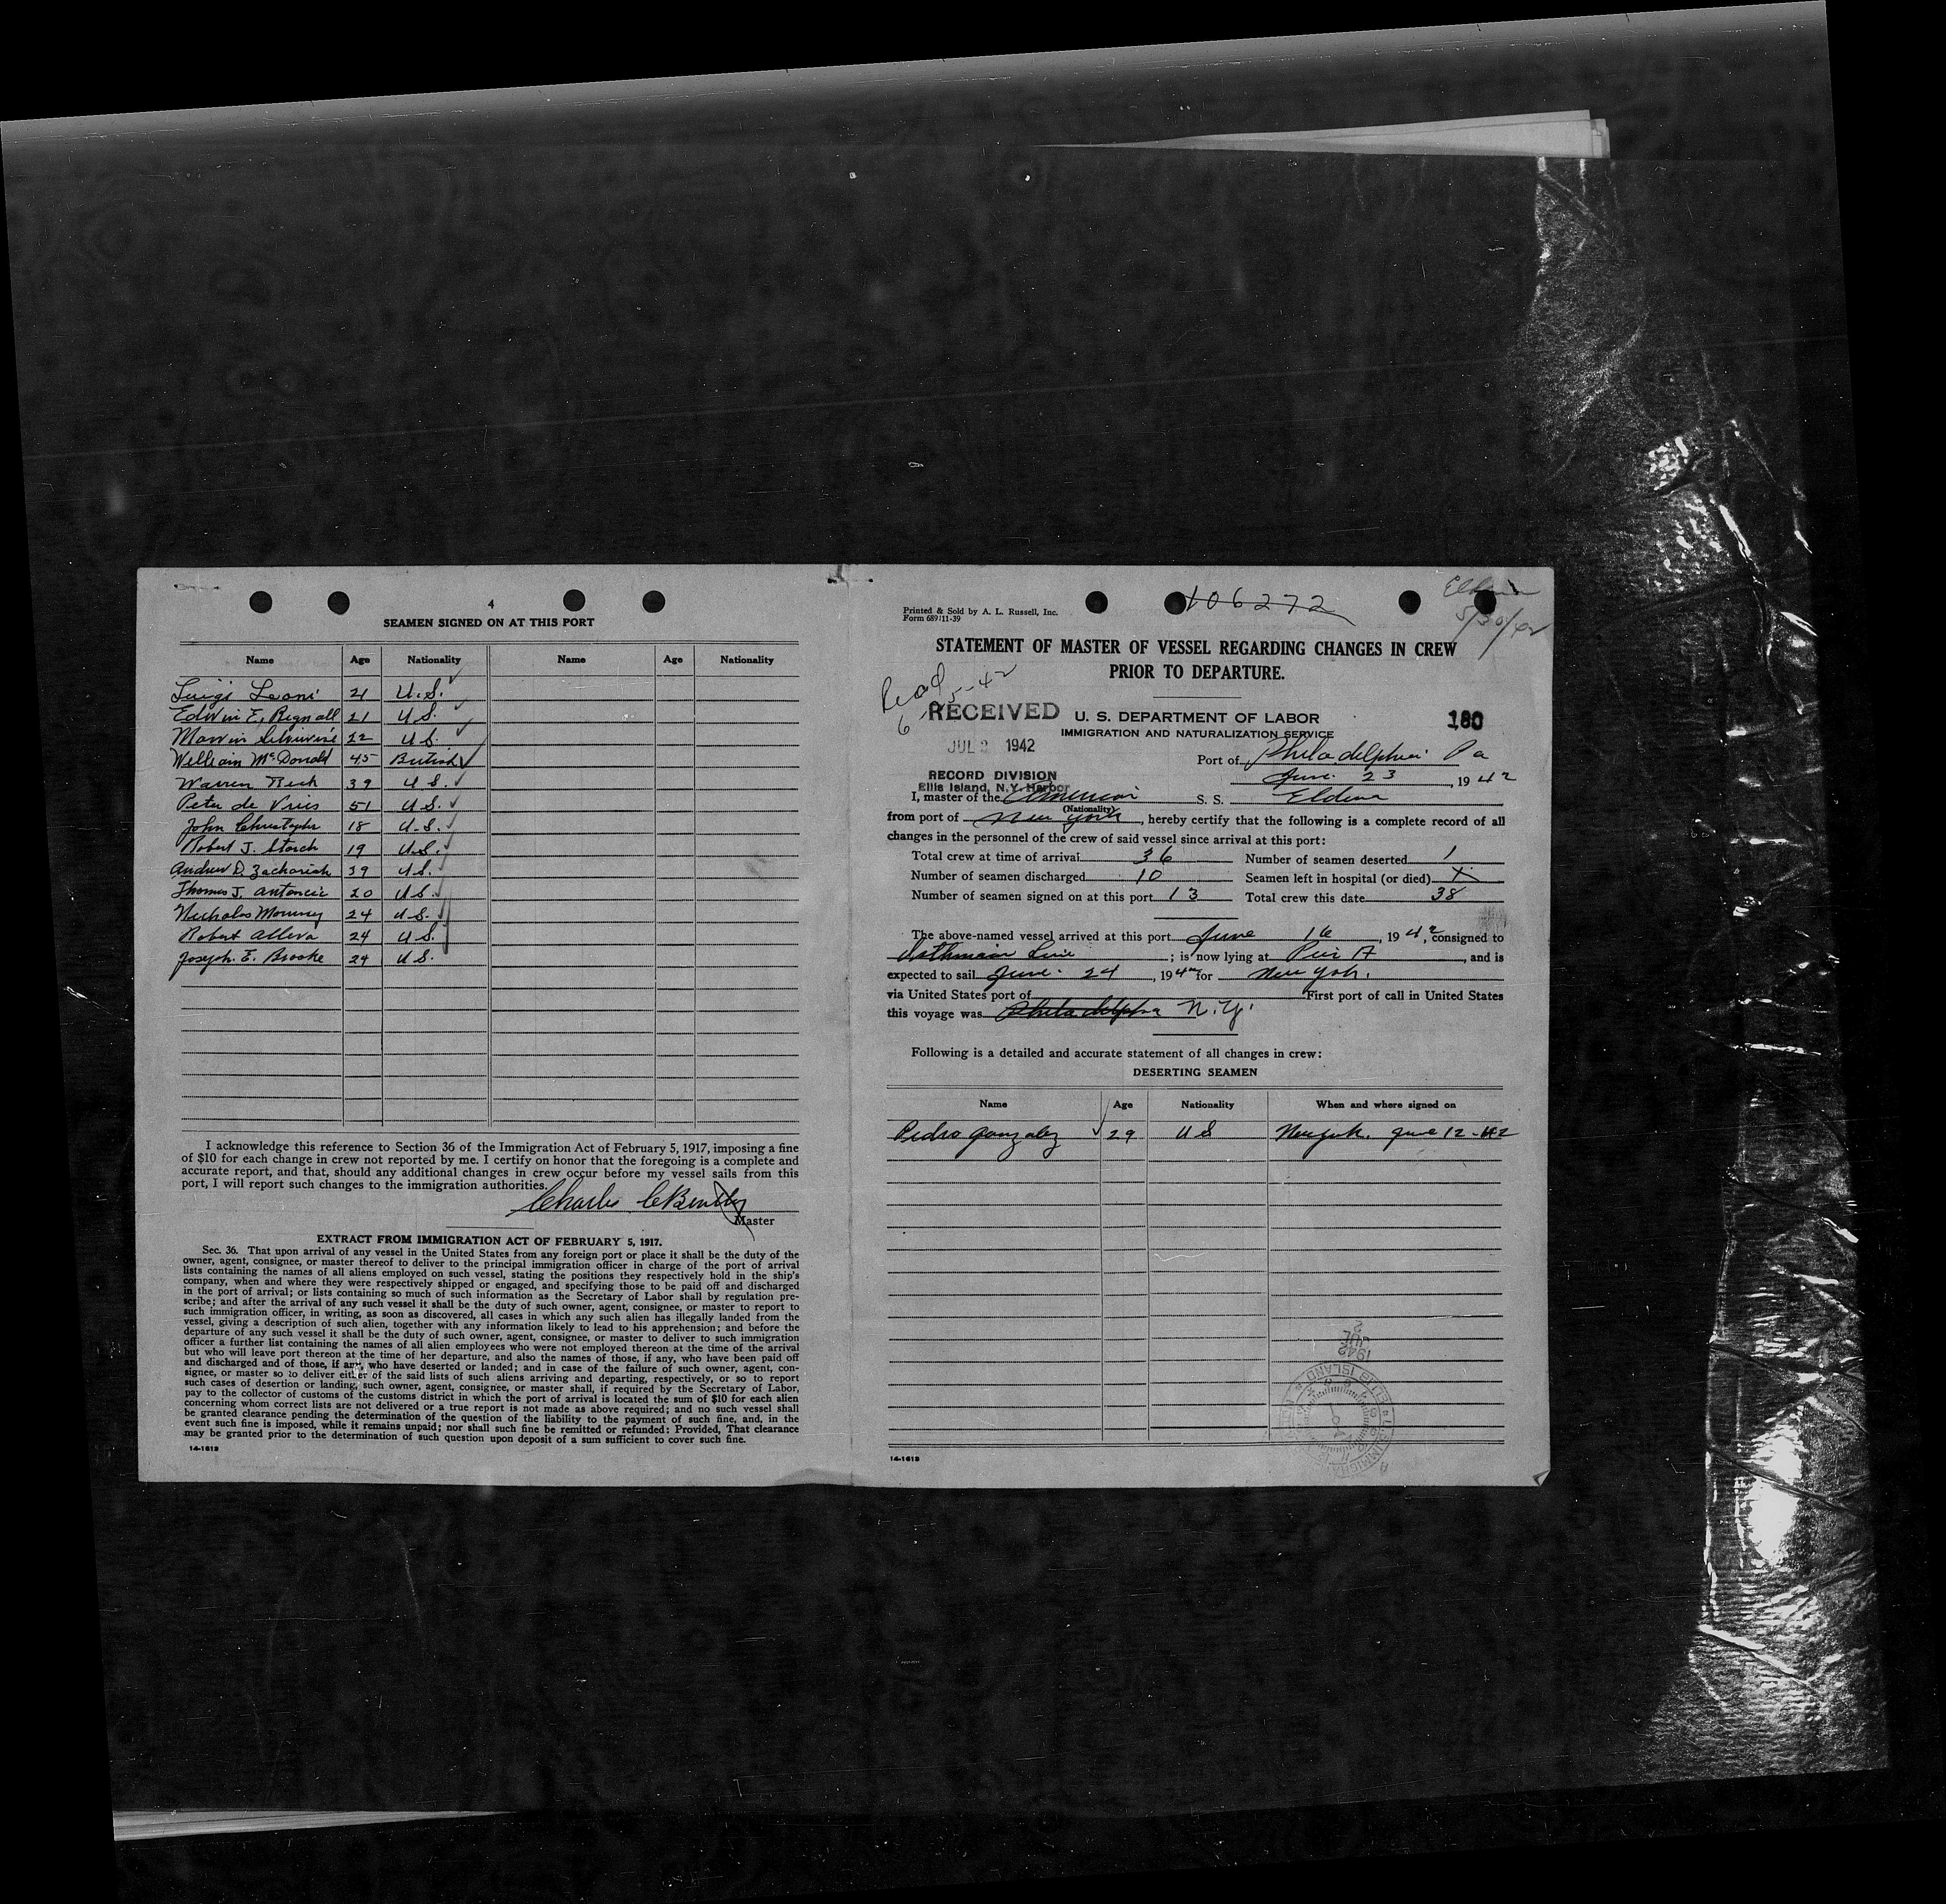 4
SEAMEN SIGNED ON AT THIS PORT
Name Age Nationality Name Age Nationality
Luigi Leoni 21 U.S.
Edwin E. Bignall 21 U S.
Marvin 22 U S.
William McDonald 45 British
Warren Beck 39 U S.
Peter de Vries 51 U S.
John Christopher 18 U.S.
Robert J. Storch 19 U.S.
Andrew D. Zachariah 39 U S.
Thomas J. Antoncic 20 U S.
Nicholas 24 U S.
Robert Alleva 24 U S.
Joseph E. Brooke 24 U S.
I acknowledge this reference to Section 36 of the Immigration Act of February 5, 1917, imposing a fine
of $10 for each change in crew not reported by me. I certify on honor that the foregoing is a complete and
accurate report, and that, should any additional changes in crew occur before my vessel sails from this
port, I will report such changes to the immigration authorities.
Charles C Bentley
Master
EXTRACT FROM IMMIGRATION ACT OF FEBRUARY 5, 1917.
Sec. 36. That upon arrival of any vessel in the United States from any foreign port or place it shall be the duty of the
owner, agent, consignee, or master thereof to deliver to the principal immigration officer in charge of the port of arrival
lists containing the names of all aliens employed on such vessel, stating the positions they respectively hold in the ship's
company, when and where they were respectively shipped or engaged, and specifying those to be paid off and discharged
in the port of arrival; or lists containing so much of such information as the Secretary of Labor shall by regulation pre-
scribe; and after the arrival of any such vessel it shall be the duty of such owner, agent, consignee, or master to report to
such immigration officer, in writing, as soon as discovered, all cases in which any such alien has illegally landed from the
vessel, giving a description of such alien, together with any information likely to lead to his apprehension; and before the
departure of any such vessel it shall be the duty of such owner, agent, consignee, or master to deliver to such immigration
officer a further list containing the names of all alien employees who were not employed thereon at the time of the arrival
but who will leave port thereon at the time of her departure, and also the names of those, if any, who have been paid off
and discharged and of those, if any, who have deserted or landed; and in case of the failure of such owner, agent, con-
signee, or master so to deliver either of the said lists of such aliens arriving and departing, respectively, or so to report
such cases of desertion or landing, such owner, agent, consignee, or master shall, if required by the Secretary of Labor,
pay to the collector of customs of the customs district in which the port of arrival is located the sum of $10 for each alien
concerning whom correct lists are not delivered or a true report is not made as above required; and no such vessel shall
be granted clearance pending the determination of the question of the liability to the payment of such fine, and, in the
event such fine is imposed, while it remains unpaid; nor shall such fine be remitted or refunded: Provided, That clearance
may be granted prior to the determination of such question upon deposit of a sum sufficient to cover such fine.
14-1613
Printed & Sold by A. L. Russell, Inc.
Form 689 11-39
106272
Eldena
5/30/42
STATEMENT OF MASTER OF VESSEL REGARDING CHANGES IN CREW
PRIOR TO DEPARTURE.
Read
RECEIVED
JUL 2 1942
RECORD DIVISION
Ellis Island, N.Y. Harbor
U. S. DEPARTMENT OF LABOR
IMMIGRATION AND NATURALIZATION SERVICE
180
Port of Philadelphia Pa
June 23, 1942
I, master of the American S. S. Eldena
(Nationality)
from port of New York, hereby certify that the following is a complete record of all
changes in the personnel of the crew of said vessel since arrival at this port:
Total crew at time of arrival 36 Number of seamen deserted 1
Number of seamen discharged 10 Seamen left in hospital (or died) X
Number of seamen signed on at this port 13 Total crew this date 38
The above-named vessel arrived at this port June 16, 1942, consigned to
Isthmian Line; is now lying at Pier A, and is
expected to sail June 24, 1942 for New York.
via United States port of First port of call in United States
this voyage was Philadelphia N.Y.
Following is a detailed and accurate statement of all changes in crew:
DESERTING SEAMEN
Name Age Nationality When and where signed on
Pedro Gonzalez 29 U S New York. June 12-42
1942
14-1613